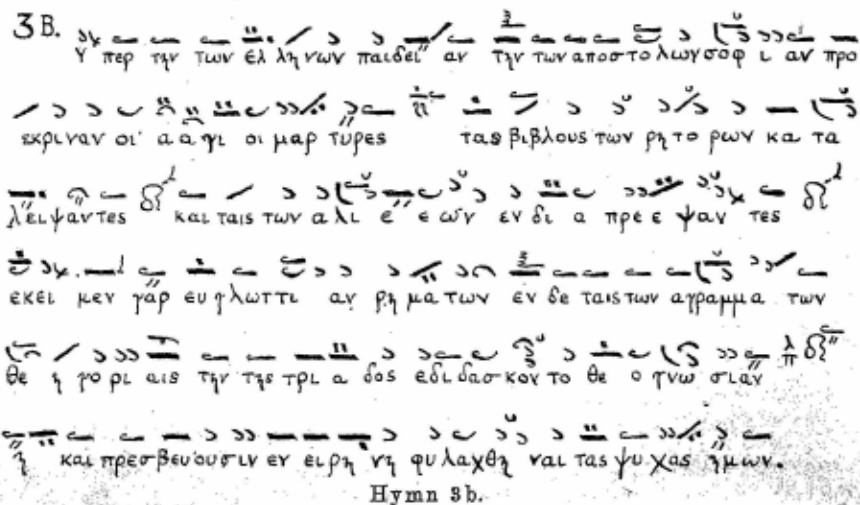 3B. Υ περ την των ελ λη νων παιδει αν την των αποστο λων σοφ ι αν προ
εκριναν οι α α γι οι μαρ τυρες τας βιβλους των ρη το ρων κα τα
λειψαντες και ταις των α λι ε ε ων εν δι α πρε ε ψαν τες
εκει μεν γαρ ευ γλωττι αν ρη μα των εν δε ταις των αγραμμα των
θε η γο ρι αις την της τρι α δος εδι δασκον το θε ο γνω σιαν
η και πρεσβευουσιν εν ειρη νη φυ λαχθη ναι τας ψυ χας ημων.
Hymn 3b.